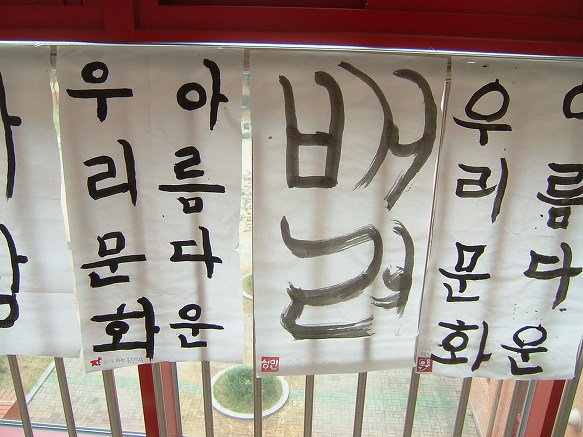 아름다운
우리문화
배려
름다운
우리문화